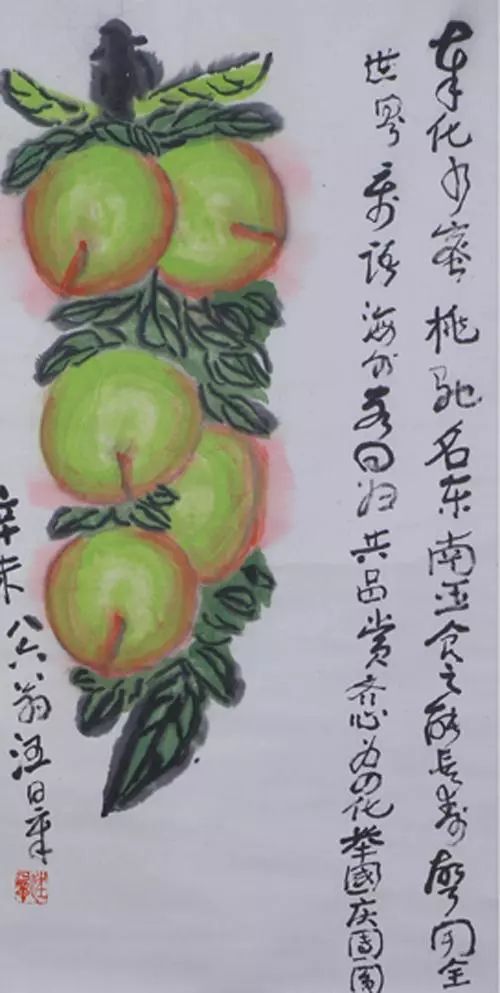 奉化水蜜桃驰名东南亚食之能长寿声闻全
世界寄语海外客曰归共品赏齐心为四化举国庆团圆
辛未八六翁汪日章